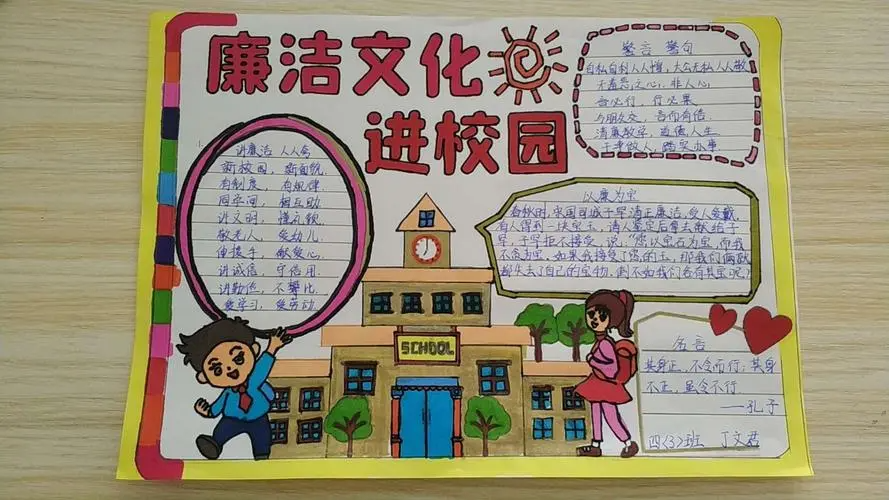 廉洁文化
进校园
警言 警句
自私自利人人憎，大公无私人人敬
不羞恶之心，非人心
言必行，行必果
与朋友交，言而有信
清廉教学，道德人生
干净做人，踏实办事
讲廉洁 人人夸
新校园，新面貌
有制度，有规律
同学间，相互助
讲文明，懂礼貌
敬老人，爱幼儿
伸援手，献爱心
讲诚信，守信用
讲勤俭，不攀比
爱学习，爱劳动
以廉为宝
春秋时，宋国司城子罕清正廉洁，受人爱戴
有人得到一块宝玉，请人鉴定后拿去献给子
罕，子罕拒不接受，说："您以宝石为宝，而我
不贪为宝，如果我接受了您的玉，那我们俩就
都失去了自己的宝物，倒不如我们各有其宝呢？
SCHOOL
名言
其身正，不令而行；其身
不正，虽令不行
——孔子
四(3)班 丁文君